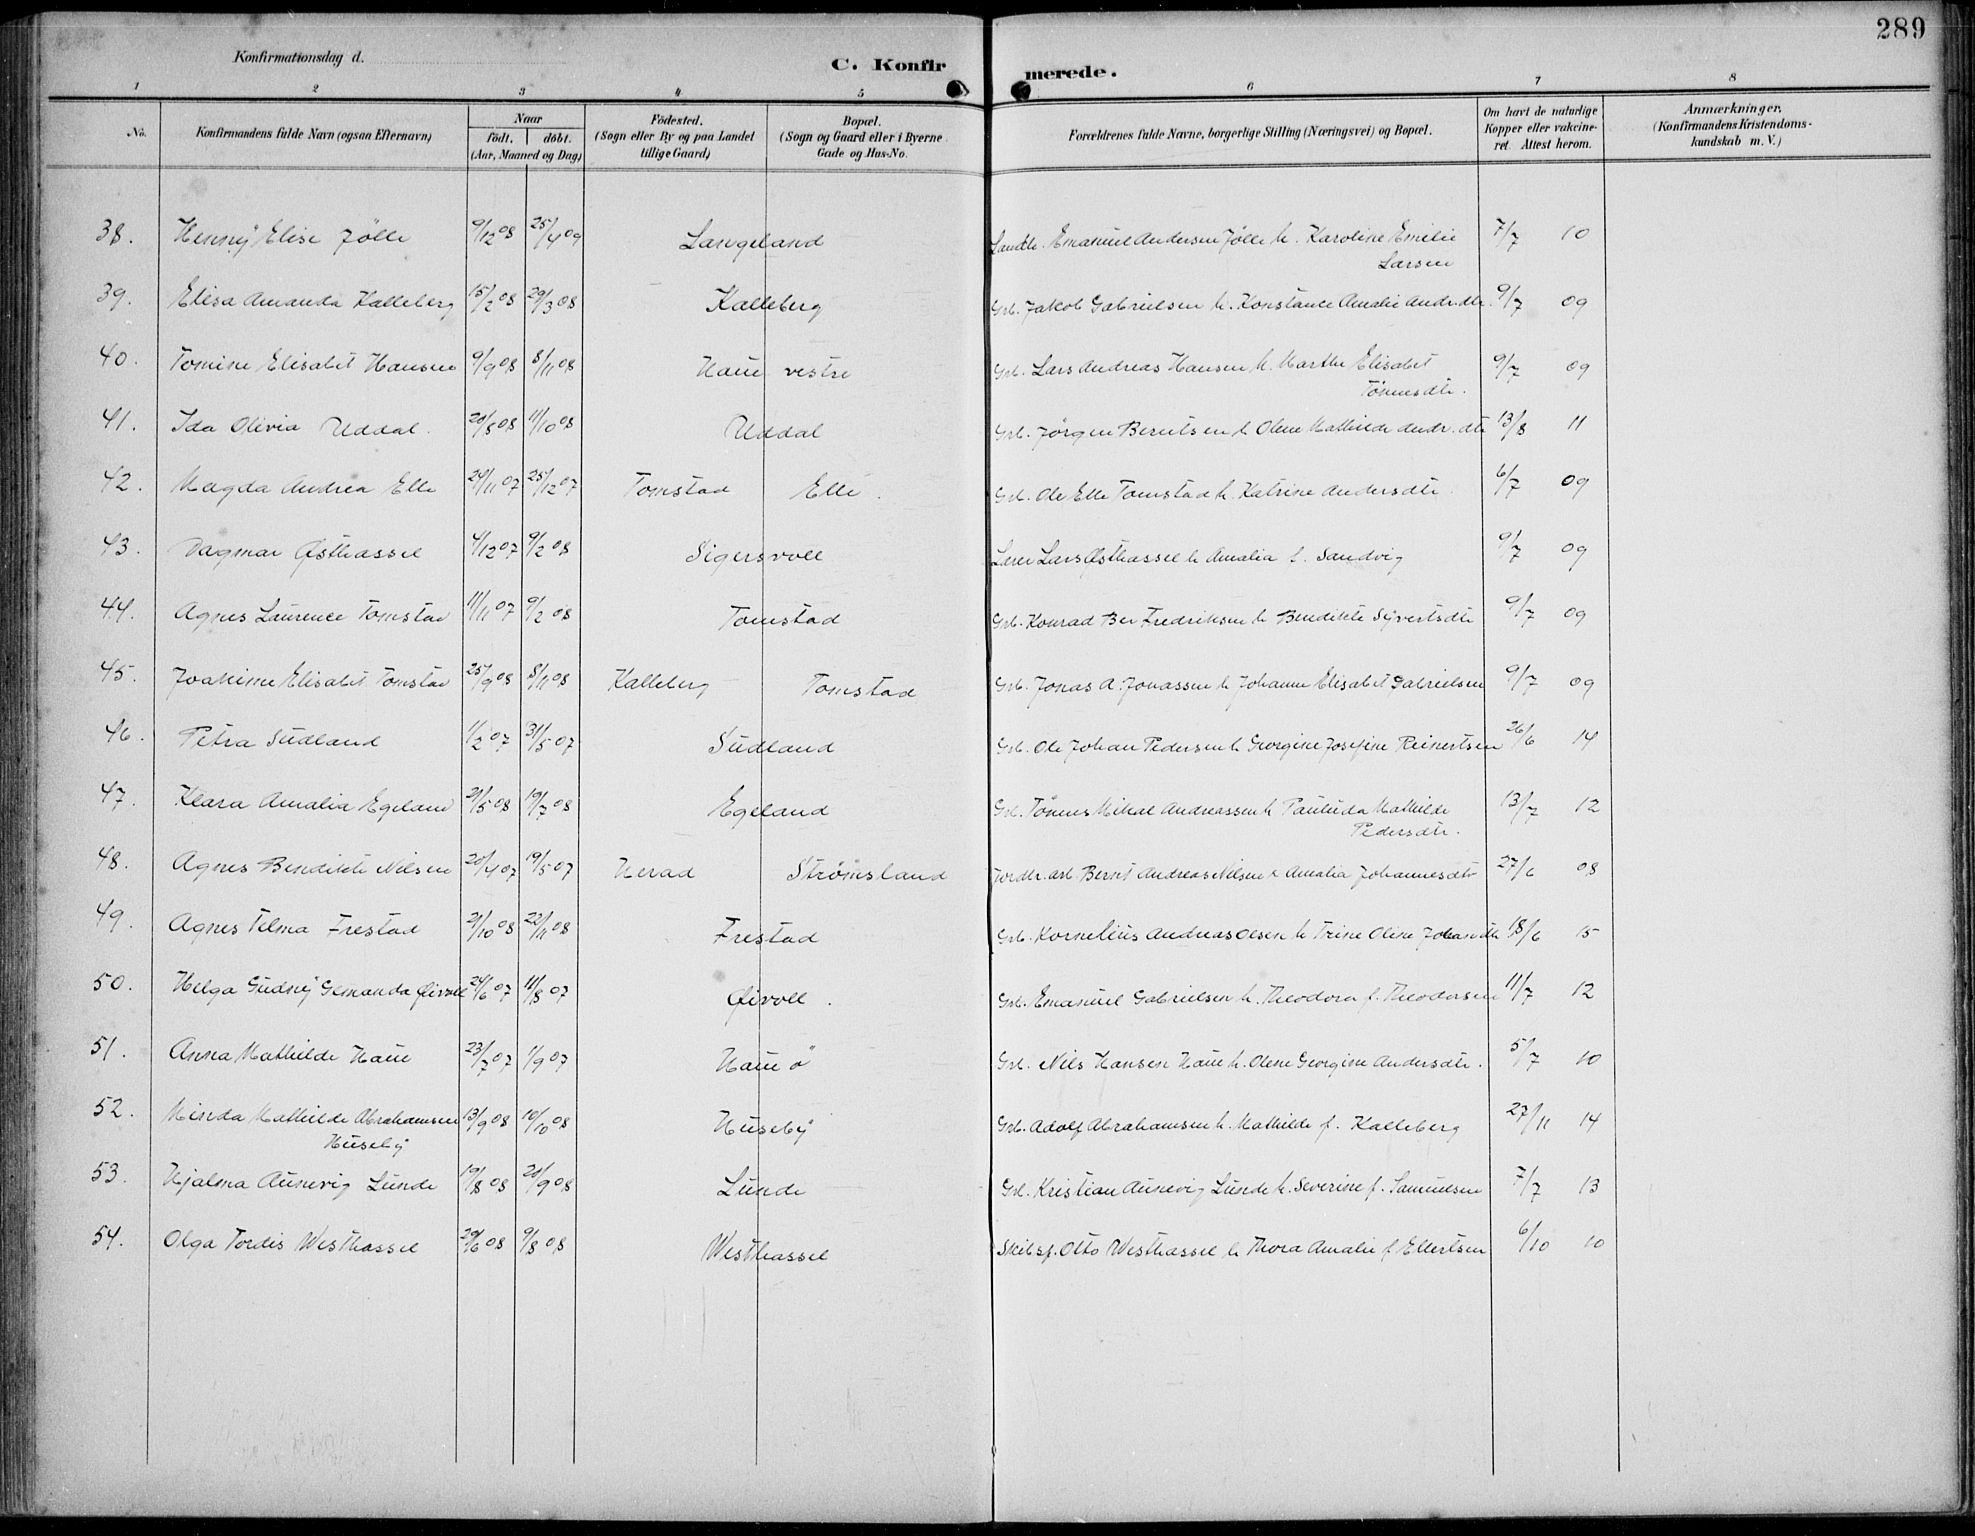 289
Konfirmationsdag d.
C. Konfirmerede.
1 2 3 4 5 6 7 8
No. Konfirmandens fulde Navn (ogsaa Efternavn) Naar født. døbt. (Aar, Maaned og Dag) Fødested. (Sogn eller By og paa Landet tillige Gaard) Bopæl. (Sogn og Gaard eller i Byerne Gade og Hus-No. Forældrenes fulde Navne, borgerlige Stilling (Næringsvei) og Bopæl. Om havt de naturlige Kopper eller vakcineret. Attest herom. Anmærkninger. (Konfirmandens Kristendomskundskab m. V.)
38. Henny Elise Jölle 9/12 08 25/4 09 Langeland Emanuel Andersen Jölle h. Karoline Emilie 7/7 10
Larsen
39. Elisa Amanda Kalleberg 15/2 08 29/3 08 Kalleberg Grb. Jakob Gabrielsen h. Konstance Amalie Andr.dtr. 9/7 09
40. Tomine Elisabet Hansen 9/9 08 8/11 08 Haue vestre Grb. Lars Andreas Hansen h. Marthe Elisabet 9/7 09
Tönnesdtr.
41. Ida Olivia Uddal. 20/8 08 11/10 08 Uddal Grb. Jörgen Berntsen h Olene Mathilde Andr.dtr 13/8 11
42. Magda Andrea Elle 24/11 07 25/12 07 Tomstad Elle. Grb. Ole Elle Tomstad h. Katrine Andersdtr. 6/7 09
43. Dagmar Østhassel 4/12 07 9/2 08 Sigersvoll Lærer Lars Østhassel h Amalia f. Sandvig 9/7 09
44. Agnes Laurence Tomstad 11/11 07 9/2 08 Tomstad Grb. Konrad Ber Fredriksen h Bendikte Syvertsdtr 9/7 09
45. Joakime Elisabet Tomstad 25/9 08 8/11 08 Kalleberg Tomstad Grb. Jonas A. Jonassen h Johanne Elisabet Gabrielsen 9/7 09
46. Petra Sudland 1/2 07 31/5 07 Sudland Grb. Ole Johan Pedersen h Georgine Josefine Reinertsen 26/6 14
47. Klara Amalia Egeland 21/5 08 19/7 08 Egeland Grb. Tönnes Mikal Andreassen h Paulida Mathilde 13/7 12
Pedersdtr.
48. Agnes Bendikte Nilsen 20/4 07 19/5 07 Herad Strömsland Jordbr. arb. Bernt Andreas Nilsen & Amalia Johannesdtr 27/6 08
49. Agnes Telma Frestad 21/10 08 22/11 08 Frestad Grb. Kornelius Andreas Olsen h Trine Oline Johansdtr 18/6 15
50. Helga Gudny Gemanda Øivoll 24/6 07 11/8 07 Øivoll. Grb. Emanuel Gabrielsen h. Theodora f. Theodorsen 11/7 12
51. Anna Mathilde Haue 23/7 07 1/9 07 Haue ö Grb. Nils Hansen Haue h. Olene Georgine Andersdtr. 5/7 10
52. Minda Mathilde Abrahamsen 13/9 08 10/10 08 Huseby Grb. Adolf Abrahamsen h. Mathilde f. Kalleberg 27/11 14
Huseby
53. Hjalma Aunevig Lunde 19/8 08 20/9 08 Lunde Grb. Kristian Aunevig Lunde h. Severine f. Samuelsen 7/7 13
54. Olga Tordis Westhassel 29/6 08 9/8 08 Westhassel Skibsf. Otto Westhassel h Thora Amalie f Ellertsen 6/10 10